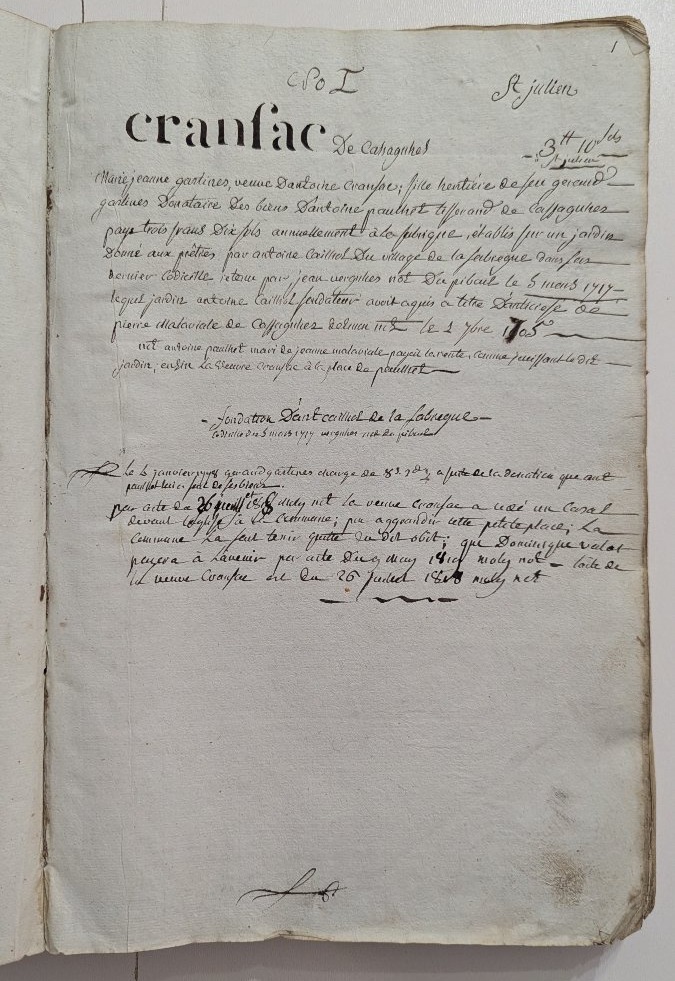 1
CPo I
St julien
cransac De Cassagnhes
3tt 10 sols
St julien
Marie jeanne gastines, veuve D'antoine Cransac; fille heritiere de feu geraud
gastines Donataire Des biens D'antoine paulhet tisserand de Cassagnhes
paye trois francs Dix sols annuellement à la fabrique, établis sur un jardin
Donné aux prêtres par antoine Cailhol Du village de la fabregue dans son
dernier Codicille retenu par jean vergnhes not. Du piboul le 5 mars 1717
lequel jardin antoine Cailhol fondateur avoit aquis a titre D'antichrese de
pierre malaviale de Cassagnhes le 2 7bre 1705
antoine paulhet mari de jeanne malaviale payoit la rente, comme jouissant le dit
jardin; enfin la veuve Cransac à la place de paulhet
fondation D'ant. cailhol de la fabregue
codicille du 5 mars 1717 vergnhes not. du piboul
Le janvier geraud gastines charge de a suite de la donation que ant.
paulhet lui a fait de ses biens.
par acte du 26 juillet 1818 moly not. la veuve Cransac a cédé un Casal
devant l'eglise à la Commune; pour aggrandir cette petite place; La
Commune La fait tenir quitte du Dit obit; que Dominique valat
payera à l'avenir par acte Du 9 may moly not. — l'acte de
la veuve Cransac est du 26 juillet 1818 moly not